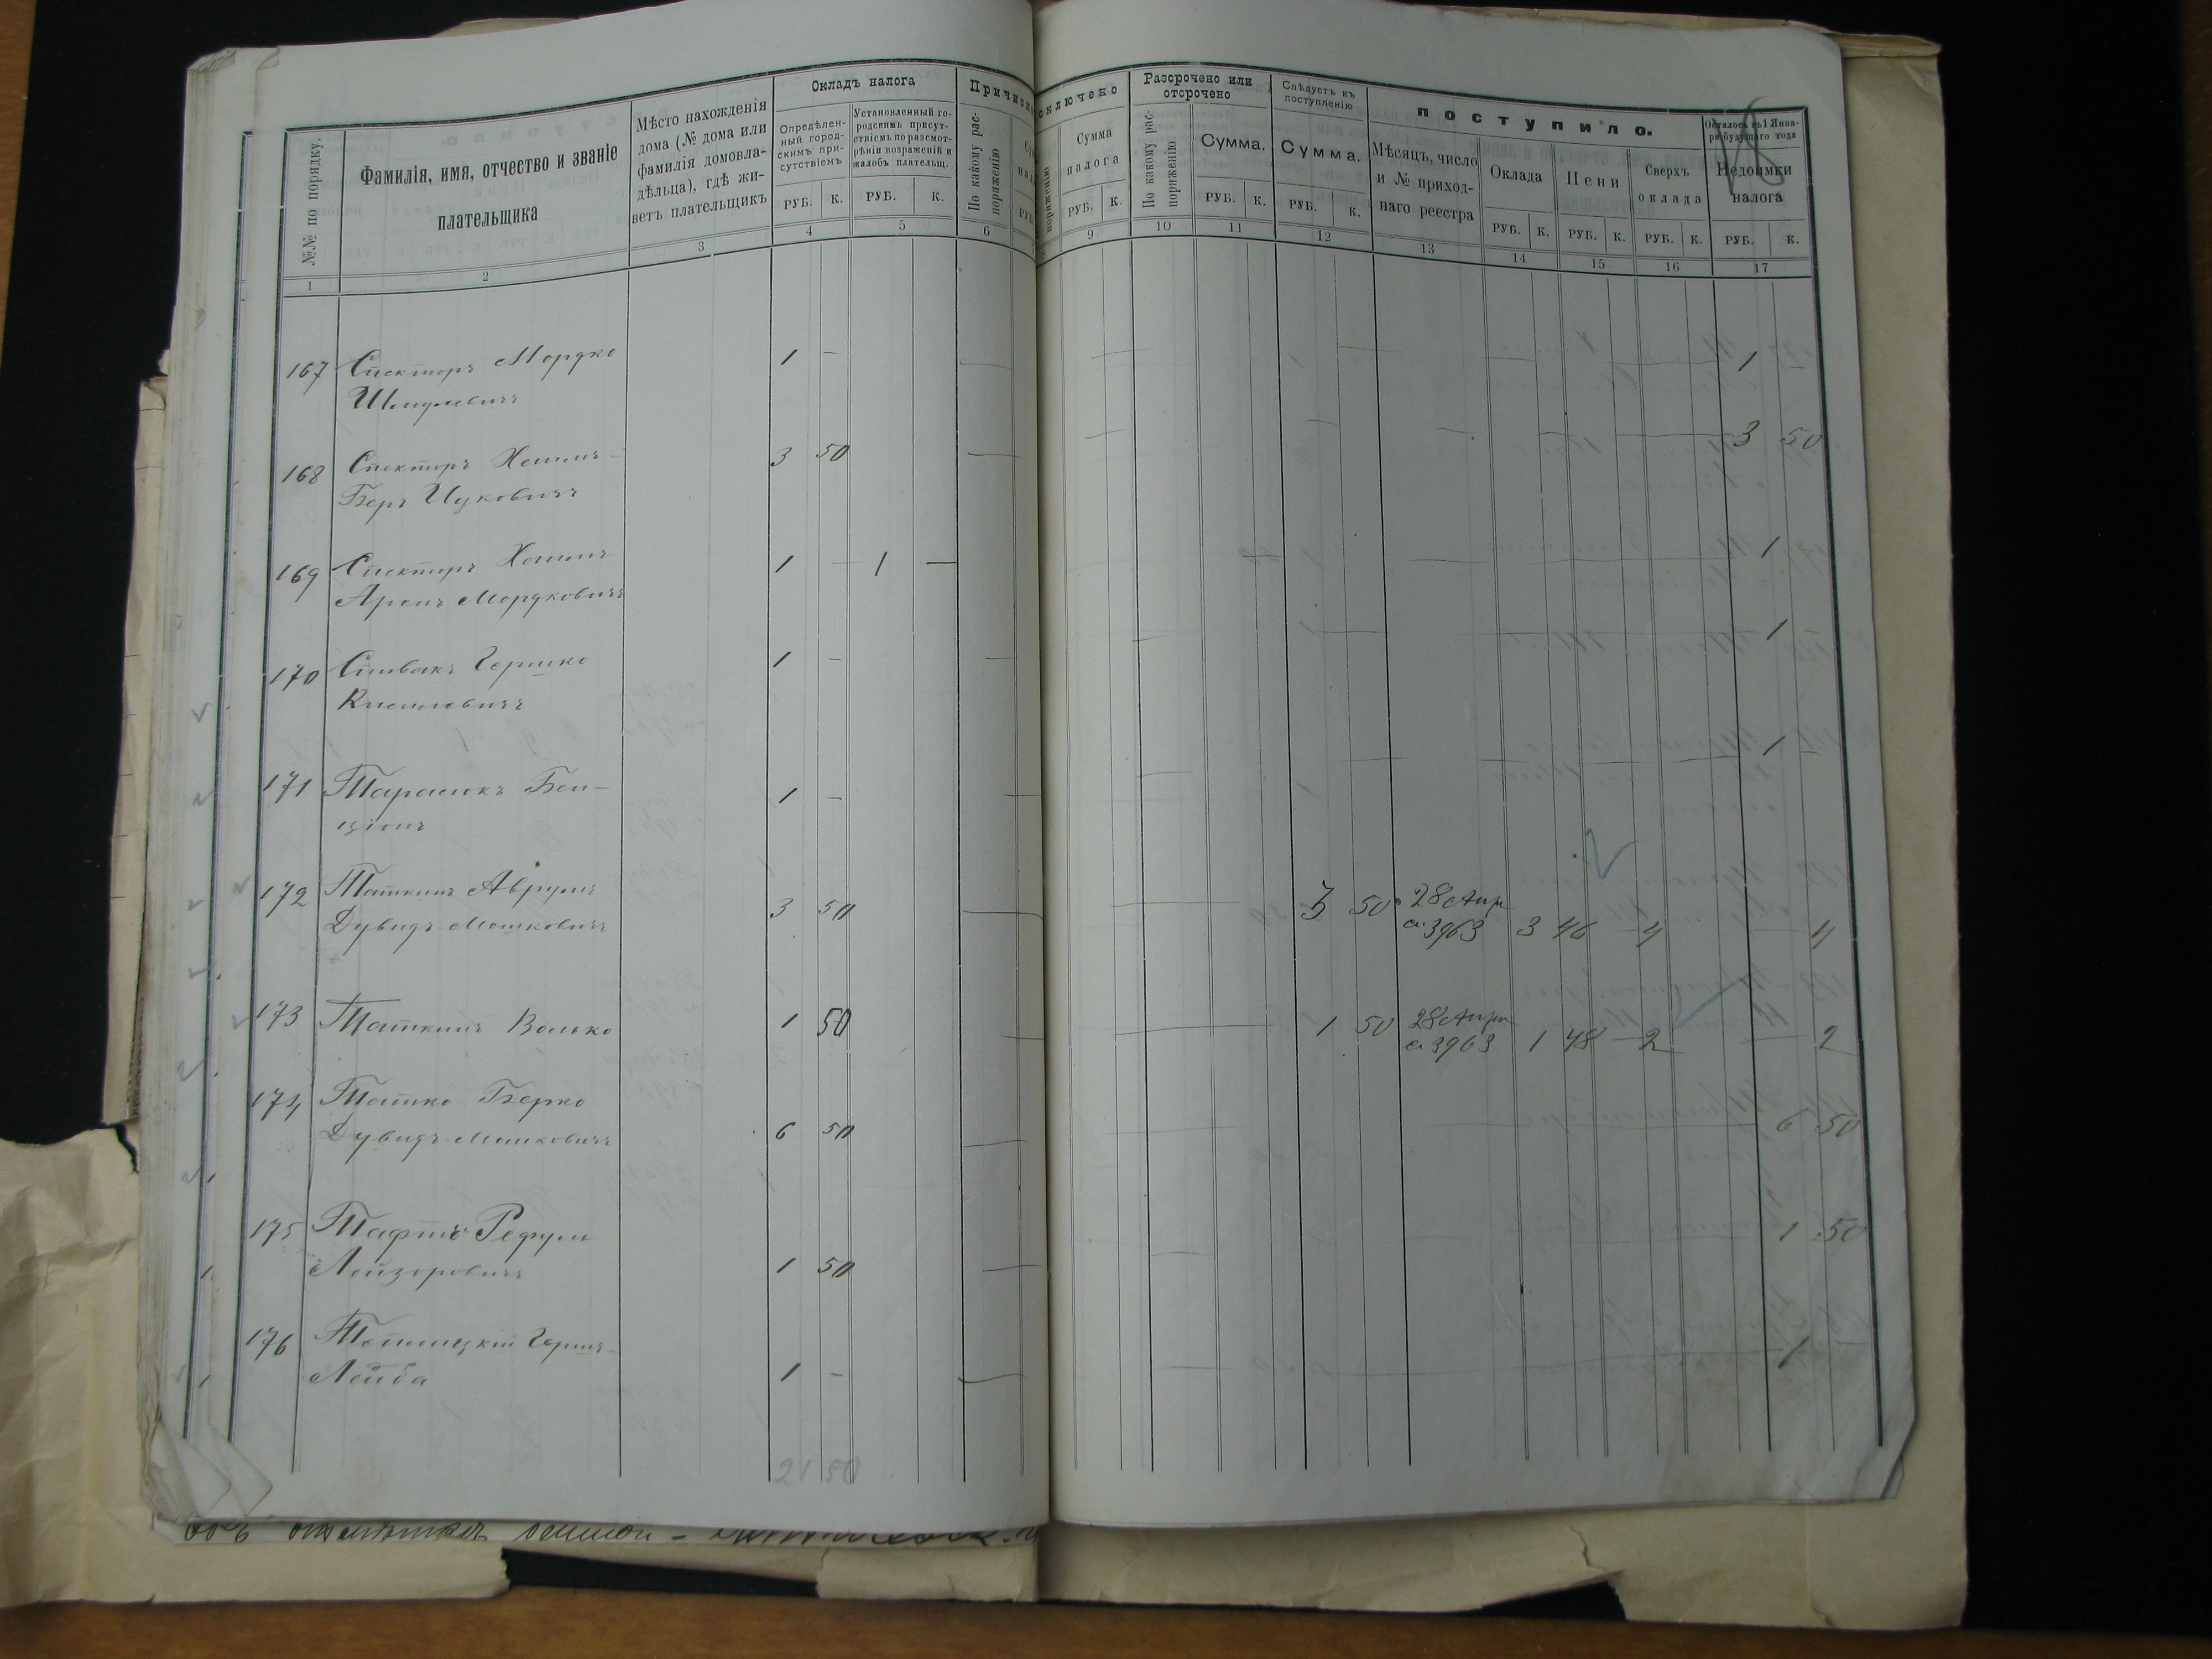 №№ по порядку.
Фамилія, имя, отчество и званіе
плательщика
Мѣсто нахожденія
дома (№ дома или
фамилія домовла-
дѣльца), гдѣ жи-
ветъ плательщикъ
Окладъ налога
Опредѣлен-
ный город-
скимъ при-
сутствіемъ
РУБ. К.
Установленный го-
родскимъ присут-
ствіемъ по разсмот-
рѣніи возраженій и
жалобъ плательщ.
РУБ. К.
По какому рас-
поряженію
1 2 3 4 5 6
ключено
Сумма
налога
РУБ. К.
Разсрочено или
отсрочено
По какому рас-
поряженію
Сумма.
РУБ. К.
Слѣдуетъ къ
поступленію
Сумма.
РУБ. К.
поступило.
Мѣсяцъ, число
и № приход-
наго реестра
Оклада
РУБ. К.
Пени
РУБ. К.
Сверхъ
оклада
РУБ. К.
Осталось въ 1 Янва-
ря будущаго года
Недоимки
налога
РУБ. К.
9 10 11 12 13 14 15 16 17
167 Спекторъ Мордко 1 — 1
Шмулевичъ
168 Спекторъ Хаимъ- 3 50 3 50
Беръ Ицковичъ
169 Спекторъ Хаимъ 1 — 1 — 1
Аронъ Мордковичъ
170 Спивакъ Гершко 1 — 1
Кисилевичъ
171 Тарасюкъ Бен- 1 — 1
ціонъ
172 Таткинъ Аврумъ
Дувидъ-Мошковичъ 3 50 3 50 28 Апр
ст 3963 3 46 4 4
173 Таткинъ Волько 1 50 1 50 28 Апр
ст 3963 1 48 2 2
174 Татко Берко
Дувидъ-Мошковичъ 6 50 6 50
175 Тафтъ
Лейзоровичъ 1 50 1 50
176 Гершъ-
Лейба 1 — 1
21 50